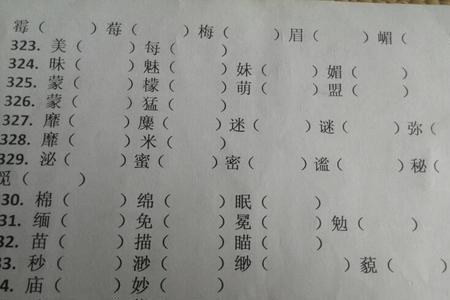 霉（ ）莓（ ）梅（ ）眉（ ）嵋（
323. 美（ ）每（ ）
324. 昧（ ）魅（ ）妹（ ）媚（ ）
325. 蒙（ ）檬（ ）萌（ ）盟（ ）
326. 蒙（ ）猛（ ）
327. 靡（ ）糜（ ）迷（ ）谜（ ）弥（
328. 靡（ ）米（ ）
329. 泌（ ）蜜（ ）密（ ）谧（ ）秘（
觅（ ）
30. 棉（ ）绵（ ）眠（ ）
31. 缅（ ）免（ ）冕（ ）勉（ ）
32. 苗（ ）描（ ）瞄（ ）
3. 秒（ ）渺（ ）缈（ ）藐（ ）
4. 庙（ ）妙（ ）